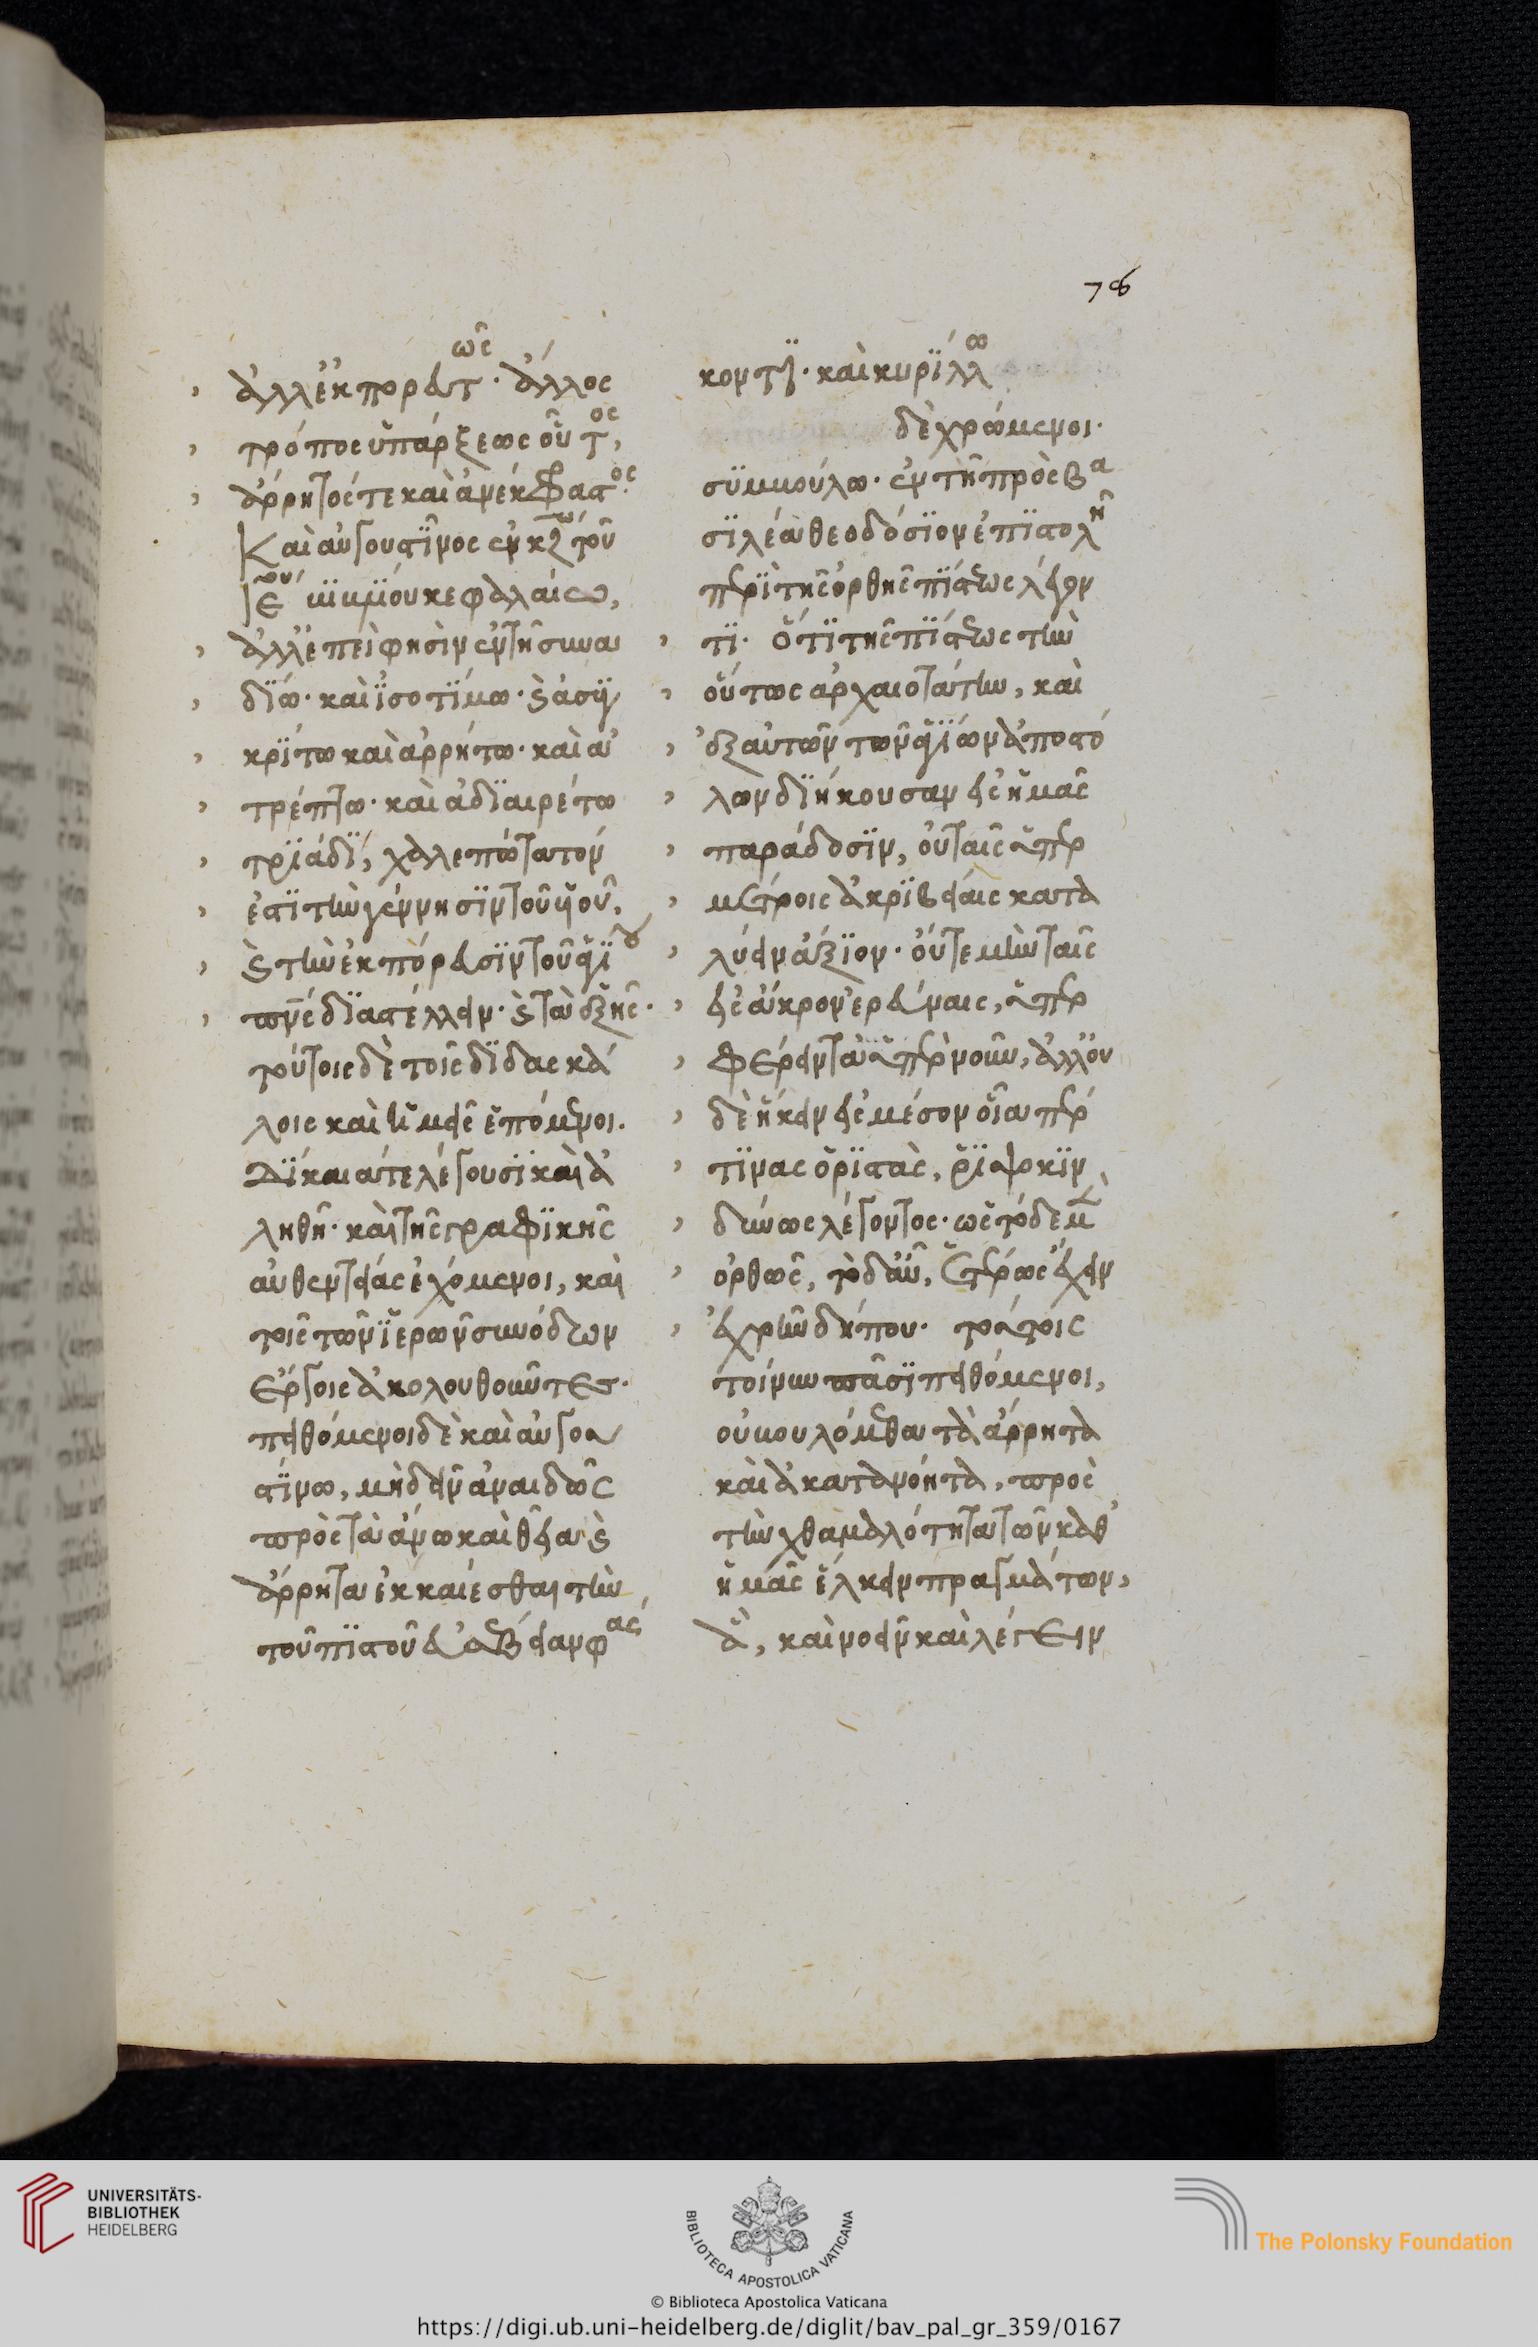 76
ἀλλ ἐκπορευτῶς· ἄλλος
τρόπος ὑπάρξεως οὗτος,
ἄρρητός τε καὶ ἀνέκφαστος·
Καὶ αὐγουστῖνος ἐν
κεφαλαίω,
ἀλλ ἐπεὶ φησὶν ἐν τῆ συναϊ
δίω· καὶ ἰσοτίμω· καὶ ἀσυγ
κρίτω καὶ ἀρρήτω· καὶ ἀ
τρέπτω· καὶ ἀδιαιρέτω
τριάδι, χαλεπώτατον
ἐστὶ τὴν γέννησιν τοῦ υἱοῦ,
καὶ τὴν ἐκπόρευσιν τοῦ ἁγίου
πνς διαστέλλειν· καὶ τὰ ἑξῆς·
τούτοις δὲ τοῖς διδασκά
λοις καὶ ἡμεῖς ἑπόμενοι.
Δίκαια τε λέγουσι καὶ ἀ
ληθῆ· καὶ τῆς γραφικῆς
αὐθεντείας ἐχόμενοι, καὶ
τοῖς τῶν ἱερῶν συνόδων
ἔργοις ἀκολουθοῦντες·
πειθόμενοι δὲ καὶ αὐγου
στίνω, μὴ δεῖν ἀναιδῶς
πρὸς τὰ ἄνω καὶ θεῖα καὶ
ἄρρητα ἐκκαίεσθαι τὴν
τοῦ πιστοῦ διάνοιαν φας
κοντι· καὶ κυρίλλω
δὲ χρώμενοι·
συμβούλω· ἐν τῆ πρὸς βα
σιλέα θεοδόσιον ἐπιστολῆ
περὶ τῆς ὀρθῆς πίστεως λέγον
τι· ὅτι τῆς πίστεως τὴν
οὕτως ἀρχαιοτάτην, καὶ
ἐξ αὐτῶν τῶν ἁγίων ἀποστό
λων διήκουσαν εἰς ἡμᾶς
παράδοσιν, οὐ ταῖς ὑπερ
μέτροις ἀκριβείαις κατα
λύειν ἄξιον· οὔτε μὴν ταῖς
εἰς ἄκρον ἐρεύναις, ὑπερ
φέρειν τὰ ὑπὲρ νοῦν, ἀλλ οὐ
δὲ ἥκειν εἰς μέσον οἷά περ
τινας ὁριστὰς,
δίνως λέγοντος· ὡς τόδε μὲν
ὀρθῶς, τόδ αὖ, ἑτέρως ἔχειν
ἐχρῆν δήπου· τούτοις
τοίνυν πᾶσι πειθόμενοι,
οὐ βουλόμεθα τὰ ἄρρητα
καὶ ἀκατανόητα, πρὸς
τὴν χθαμαλότητα τῶν καθ
ἡμᾶς ἕλκειν πραγμάτων,
ἃ, καὶ νοεῖν καὶ λέγειν
UNIVERSITÄTS-
BIBLIOTHEK
HEIDELBERG
BIBLIOTECA APOSTOLICA VATICANA
The Polonsky Foundation
© Biblioteca Apostolica Vaticana
https://digi.ub.uni-heidelberg.de/diglit/bav_pal_gr_359/0167